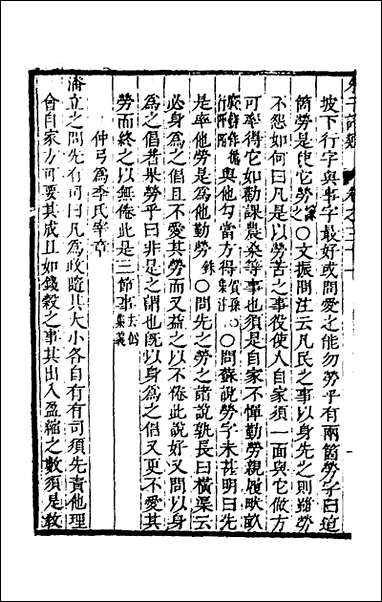 坡下行字與事字最好或問愛之能勿勞乎有兩箇勞字曰這
箇勞是使它勞○文振問注云凡民之事以身先之則雖勞
不怨如何曰凡是以勞苦之事役使人自家須一面與它做方
可率得它如勸課農桑等事也須是自家不憚勤勞親履畎畝
與他勾當方得○問蘇說勞字未甚明曰先
是率他勞是為他勤勞○問先之勞之諸說孰長曰橫渠云
必身為之倡且不愛其勞而又益之以不倦此說好又問以身
為之倡者果勞乎曰非是之謂也旣以身為之倡又更不愛其
勞而終之以無倦此是三節事
仲弓為季氏宰章
潘立之問先有司曰凡為政隨其大小各自有有司須先責他理
會自家方可要其成且如錢穀之事其出入盈縮之數須是教